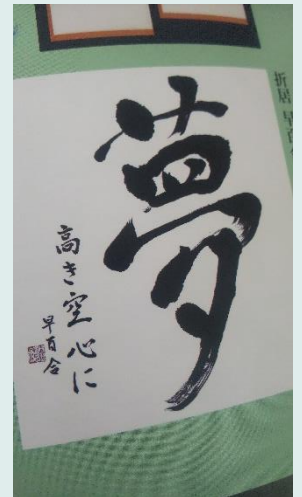 折居 早百
夢
高き空心に
早百合